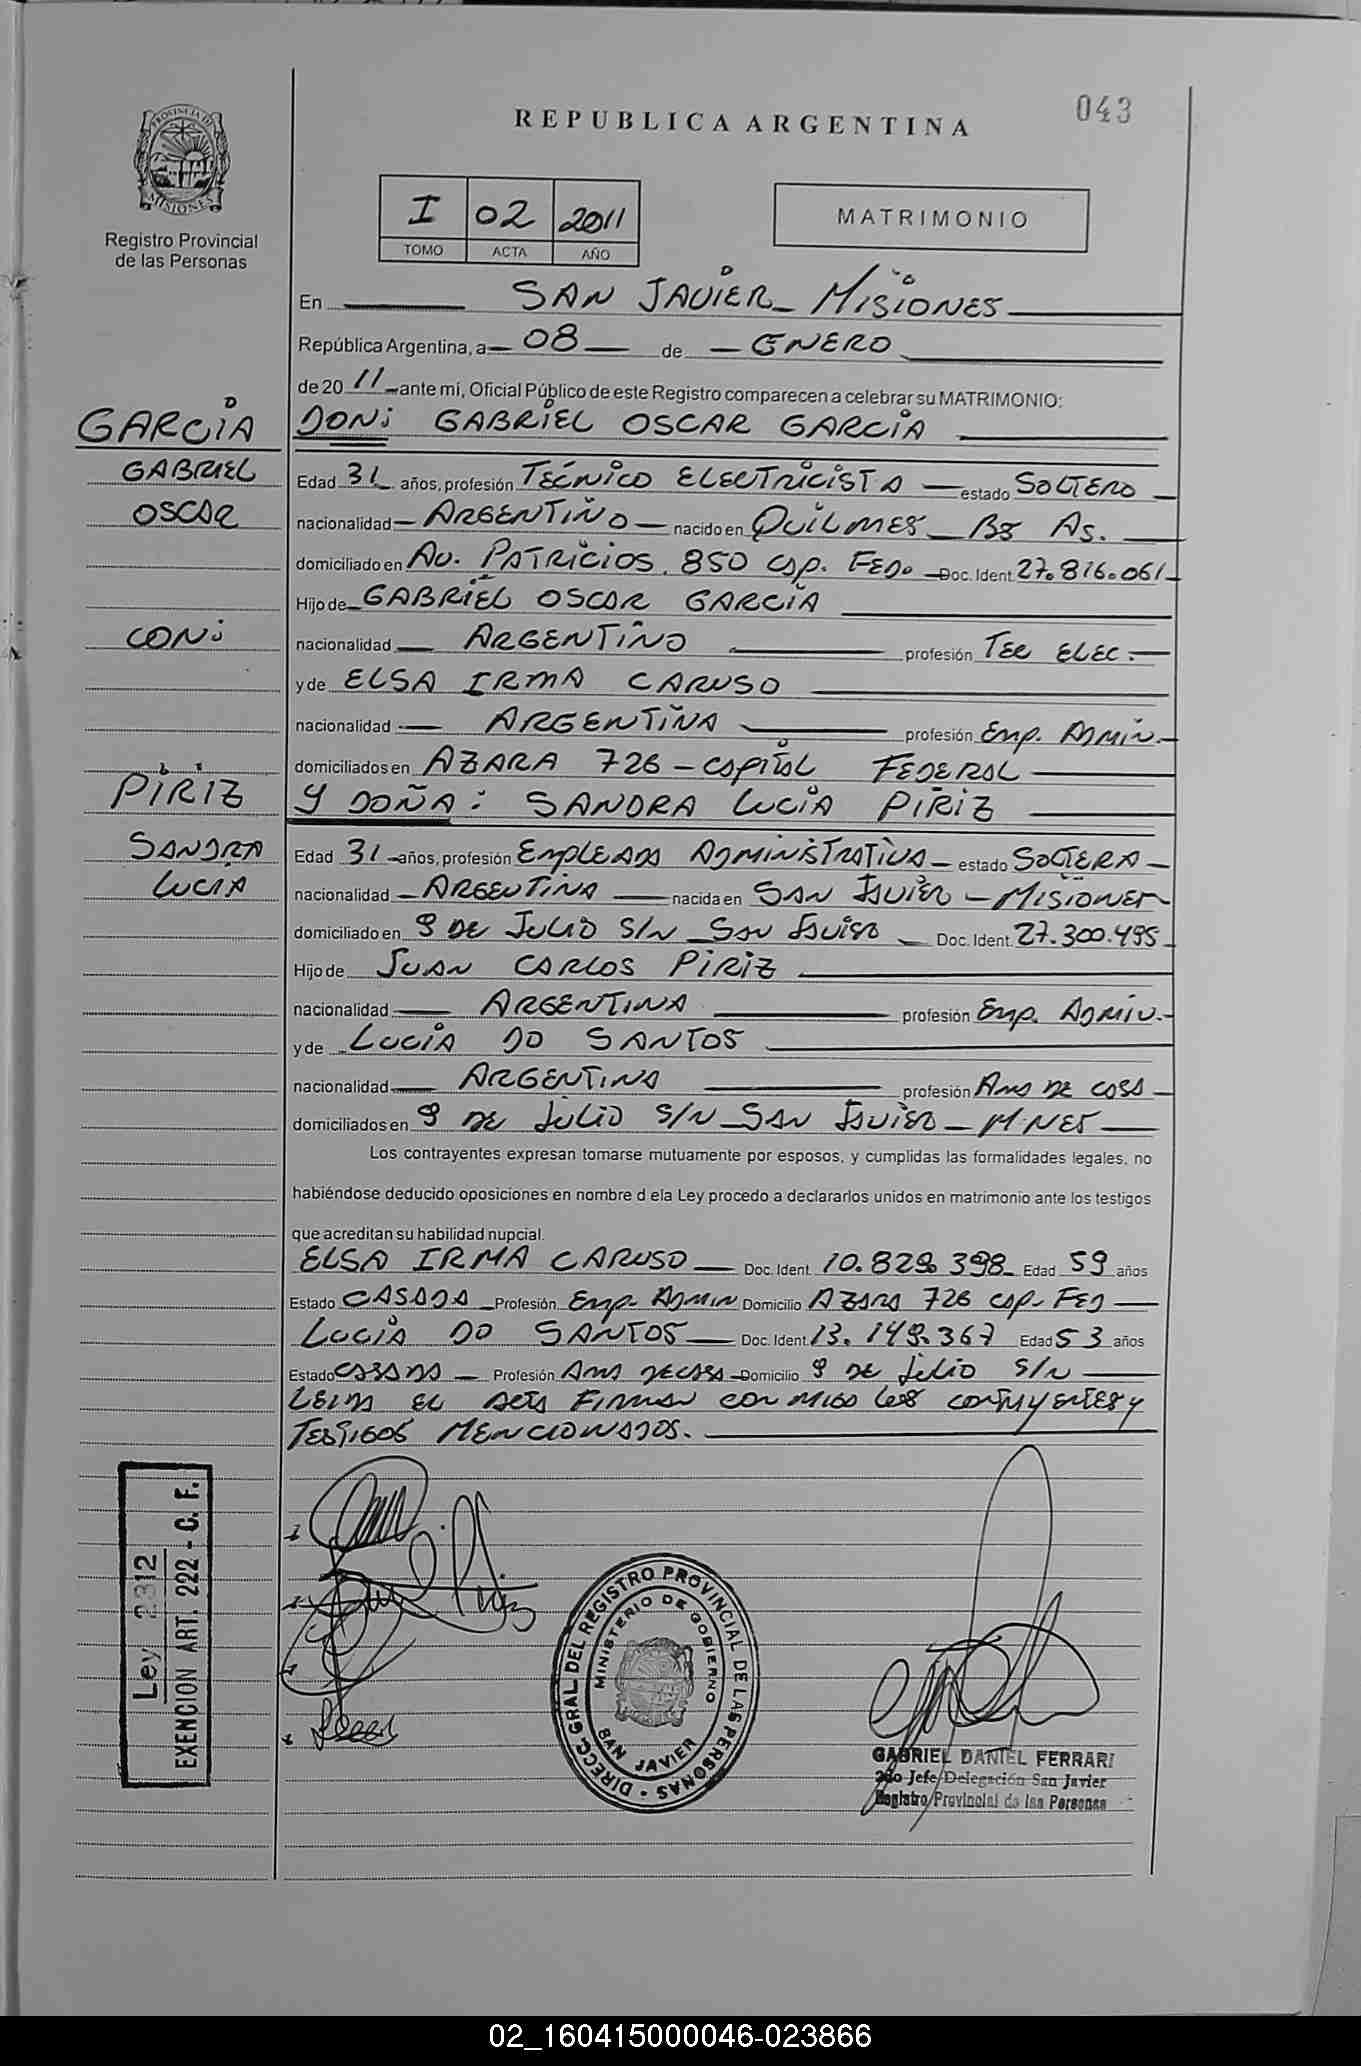 043
REPUBLICA ARGENTINA
PROVINCIA DE MISIONES
Registro Provincial
de las Personas
I 02 2011
TOMO ACTA AÑO
MATRIMONIO
En SAN JAVIER - MISIONES
República Argentina, a 08 de ENERO
de 20 11 ante mi, Oficial Público de este Registro comparecen a celebrar su MATRIMONIO:
GARCÍA
DON: GABRIEL OSCAR GARCÍA
GABRIEL
Edad 31 años, profesión TÉCNICO ELECTRICISTA estado SOLTERO
OSCAR
nacionalidad ARGENTINO nacido en QUILMES - Bs As.
domiciliado en AV. PATRICIOS 850 CAP. FED. Doc. Ident. 27.816.061
Hijo de GABRIEL OSCAR GARCÍA
CON:
nacionalidad ARGENTINO profesión TEC ELEC.
y de ELSA IRMA CARUSO
nacionalidad ARGENTINA profesión Emp. ADMIN.
domiciliados en AZARA 726 - CAPITAL FEDERAL
PIRIZ
Y DOÑA: SANDRA LUCÍA PIRIZ
SANDRA
Edad 31 años, profesión EMPLEADA ADMINISTRATIVA estado SOLTERA
LUCÍA
nacionalidad ARGENTINA nacida en SAN JAVIER - MISIONES
domiciliado en 9 DE JULIO S/N - SAN JAVIER Doc. Ident. 27.300.495
Hijo de JUAN CARLOS PIRIZ
nacionalidad ARGENTINA profesión Emp. ADMIN.
y de LUCÍA DO SANTOS
nacionalidad ARGENTINA profesión AMA DE CASA
domiciliados en 9 DE JULIO S/N - SAN JAVIER - MNES
Los contrayentes expresan tomarse mutuamente por esposos, y cumplidas las formalidades legales, no
habiéndose deducido oposiciones en nombre d ela Ley procedo a declararlos unidos en matrimonio ante los testigos
que acreditan su habilidad nupcial.
ELSA IRMA CARUSO Doc. Ident. 10.829.398 Edad 59 años
Estado CASADA Profesión Emp. ADMIN Domicilio AZARA 726 CAP. FED
LUCÍA DO SANTOS Doc. Ident. 13.149.367 Edad 53 años
Estado CASADA Profesión AMA DE CASA Domicilio 9 DE JULIO S/N
LEIDA EL ACTA FIRMAN CONMIGO LOS CONTRAYENTES Y
TESTIGOS MENCIONADOS.
Ley 2312
EXENCION ART. 222 - C. F.
DIRECC. GRAL. DEL REGISTRO PROVINCIAL DE LAS PERSONAS
MINISTERIO DE GOBIERNO
SAN JAVIER
GABRIEL DANIEL FERRARI
2do Jefe Delegación San Javier
Registro Provincial de las Personas
02_160415000046-023866